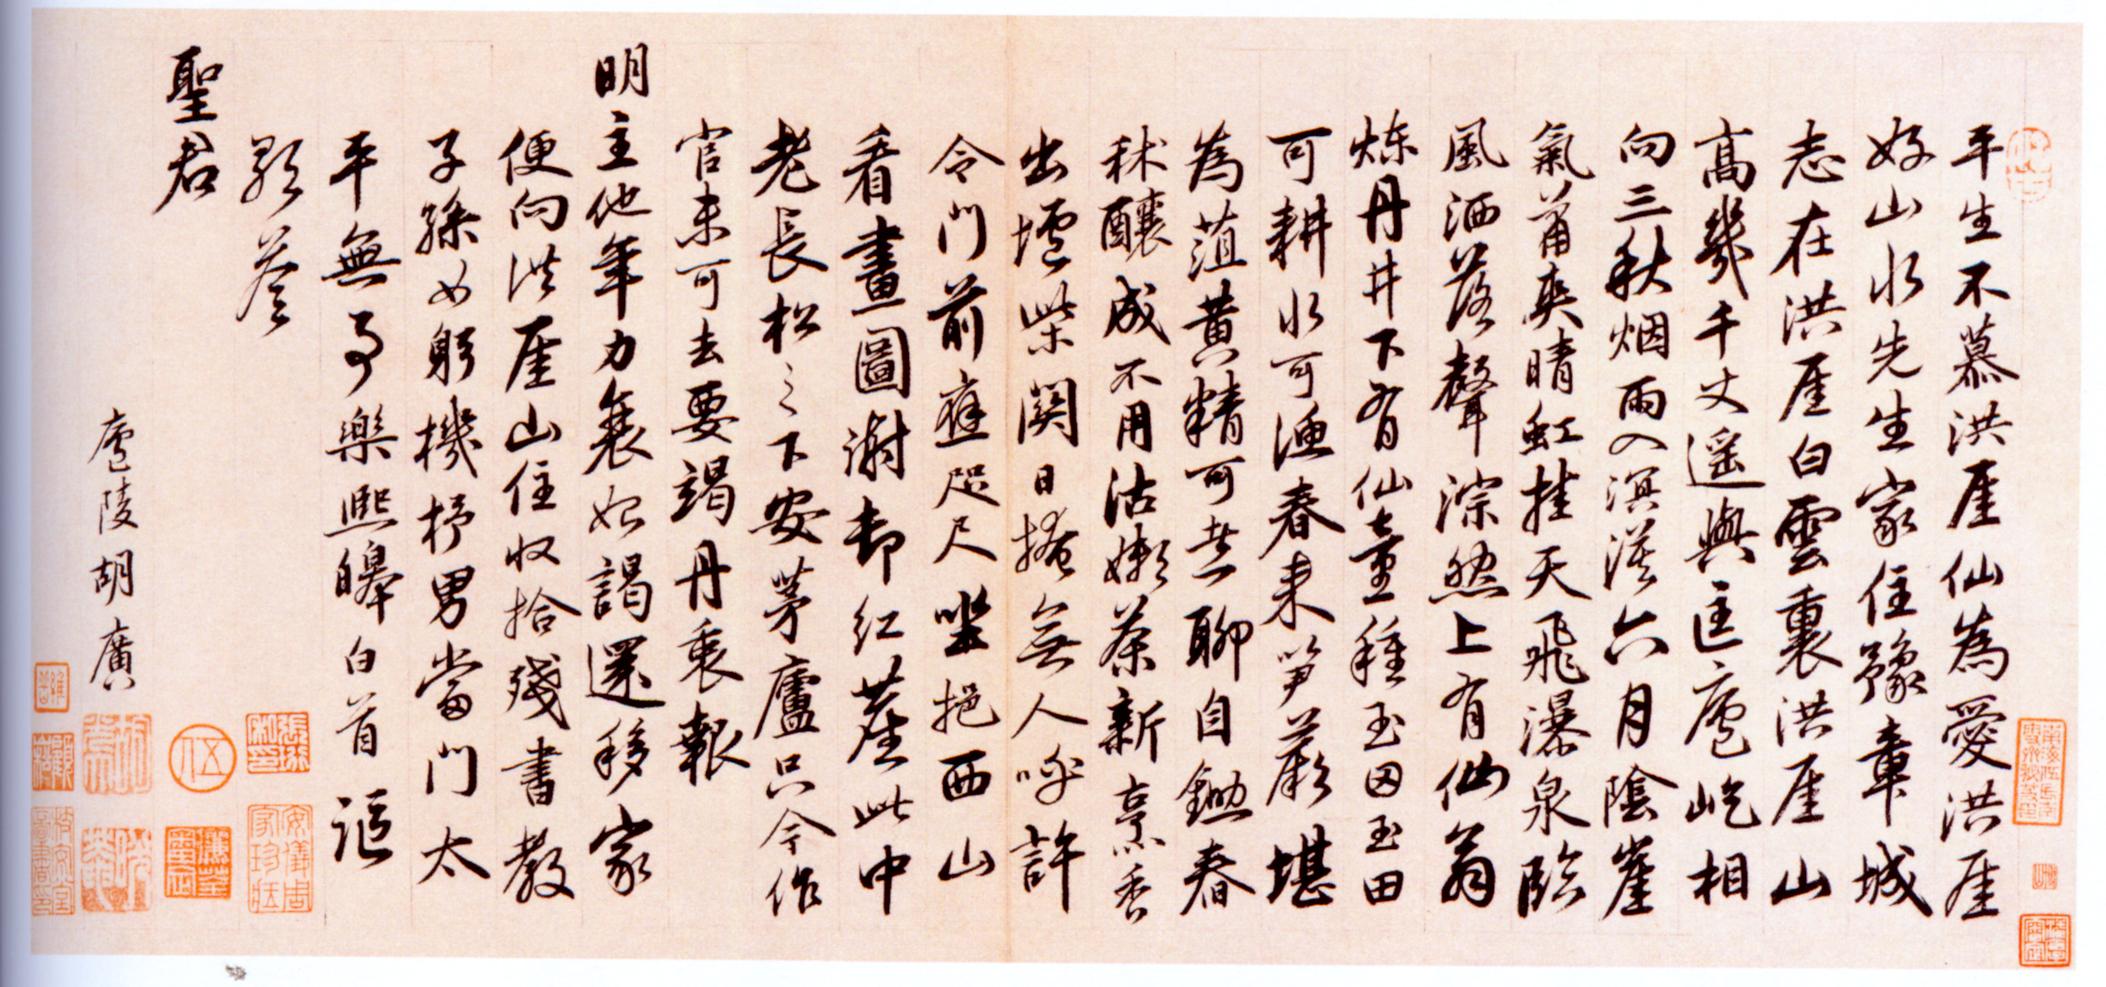 平生不慕洪厓仙為愛洪厓
好山水先生家住豫章城
志在洪厓白雲裏洪厓山
高幾千丈遥與匡廬屹相
向三秋烟雨入溟漠六月陰崖
氣蕭爽晴虹挂天飛瀑泉臨
風洒落聲淙然上有仙翁
煉丹井下有仙童種玉田玉田
可耕水可漁春来笋蕨堪
為菹黄精可煮聊自鋤春
秫釀成不用沽嫩茶新烹香
出壚柴関日掩無人呼許
令門前應咫尺坐挹西山
看畫圖謝却紅塵此中
老長松之下安茅廬只今作
官未可去要竭丹衷報
明主他年力衰始謁還移家
便向洪厓山住收拾殘書教
子孫女躬機杼男當門太
平無事樂熙皞白首謳
歌答
聖君
廬陵胡廣